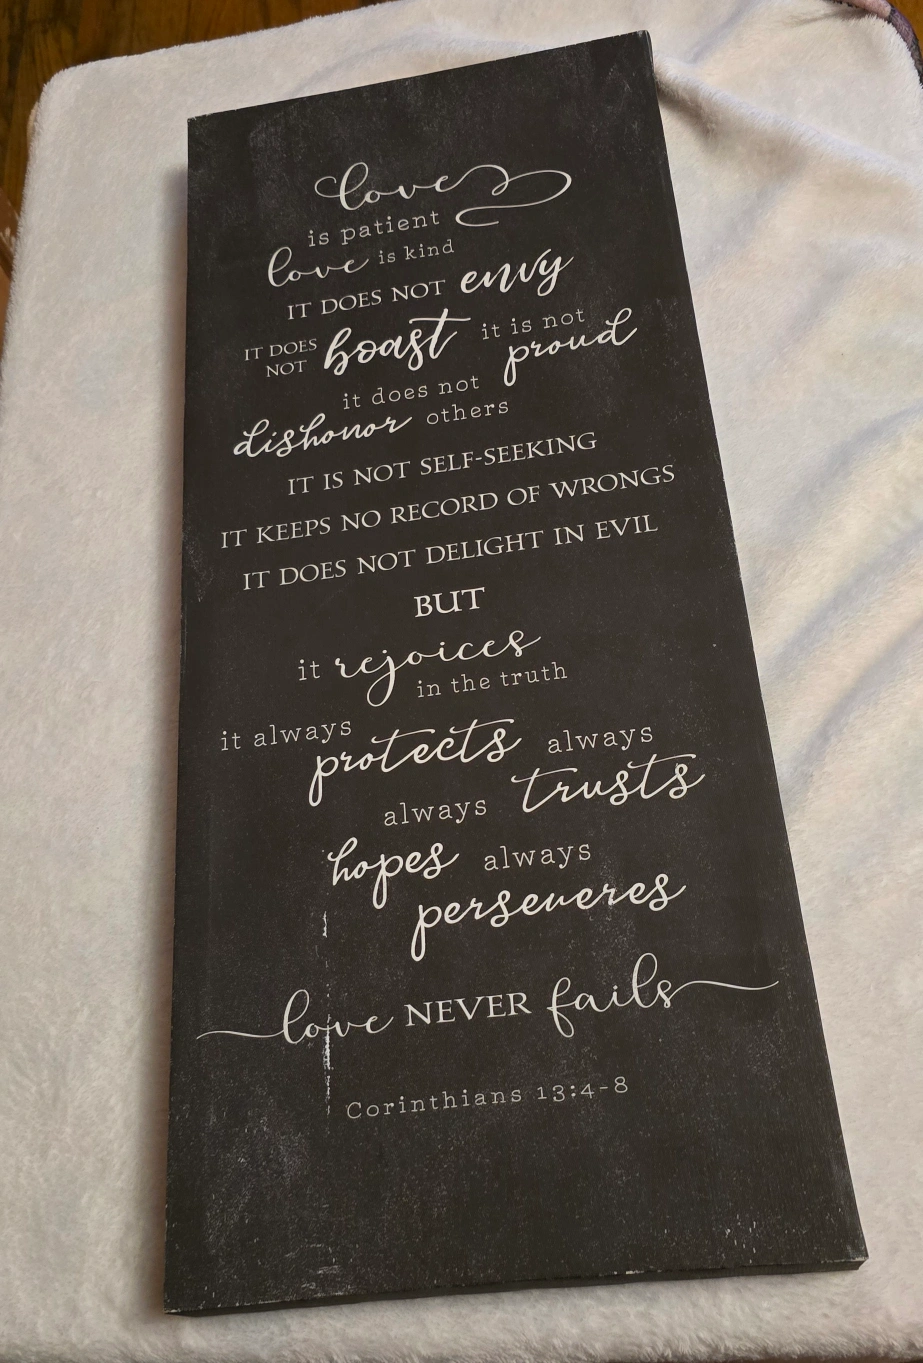 love
is patient
love is kind
IT DOES NOT envy
IT DOES NOT boast it is not proud
it does not
dishonor others
IT IS NOT SELF-SEEKING
IT KEEPS NO RECORD OF WRONGS
IT DOES NOT DELIGHT IN EVIL
BUT
it rejoices
in the truth
it always protects always
always trusts
hopes always
perseveres
love NEVER fails
Corinthians 13:4-8